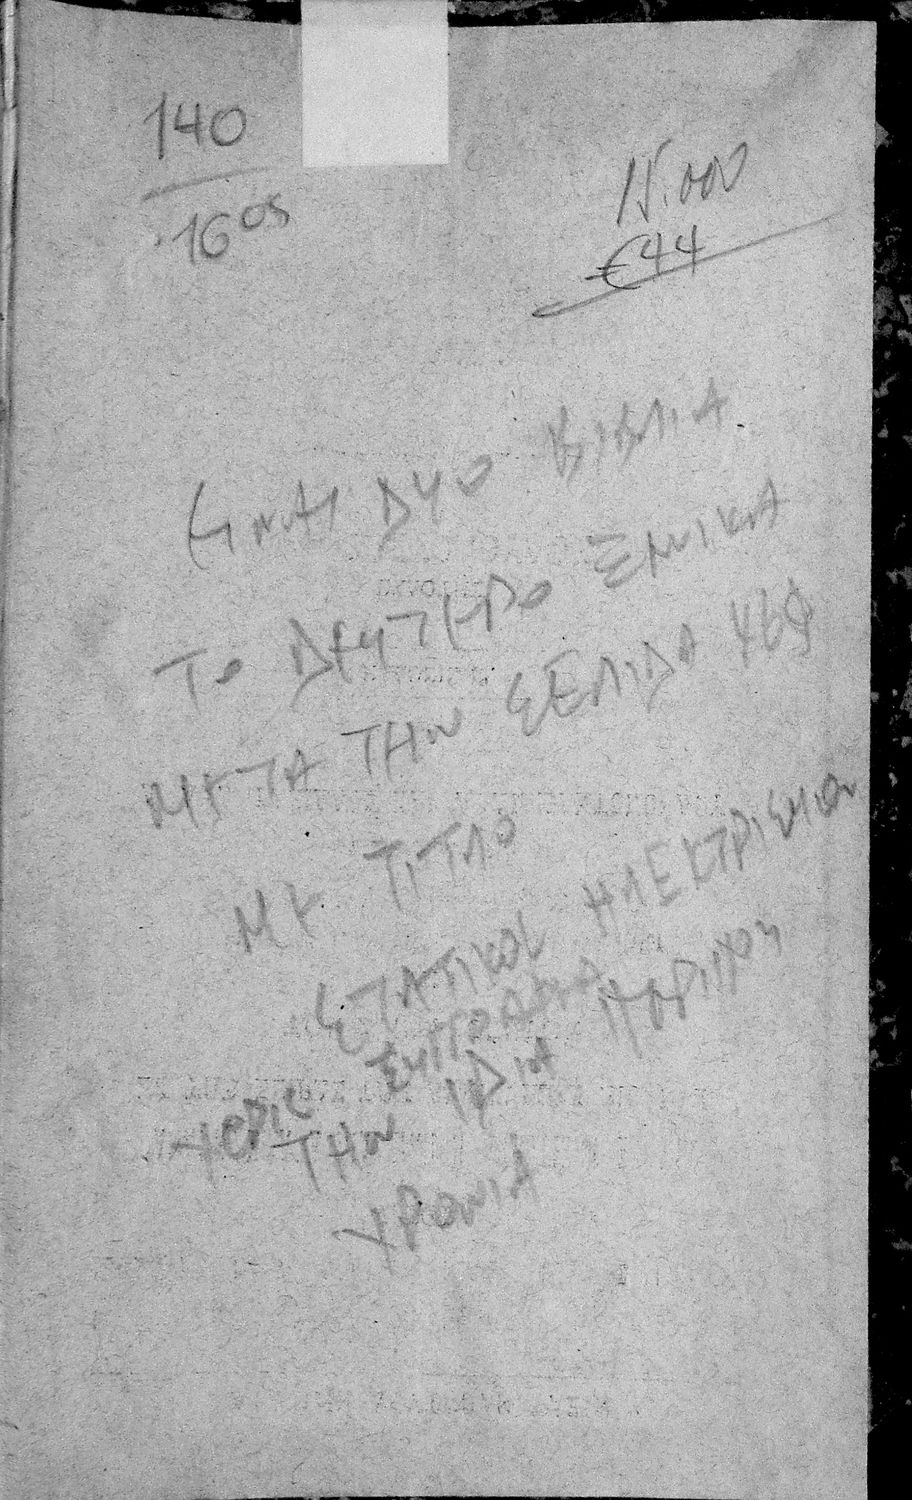 140
1605
15.000
€44
ΕΙΝΑΙ ΔΥΟ ΒΙΒΛΙΑ
ΤΟ ΔΕΥΤΕΡΟ ΞΕΝΙΚΑ
ΜΕΤΑ ΤΗΝ ΣΕΛΙΔΑ
ΜΕ ΤΙΤΛΟ
ΣΤΑΤΙΚΟΣ ΗΛΕΚΤΡΙΣΜΟΣ
ΧΩΡΙΣ ΣΥΓΓΡΑΦΕΑ
ΤΗΝ ΙΔΙΑ
ΧΡΟΝΙΑ